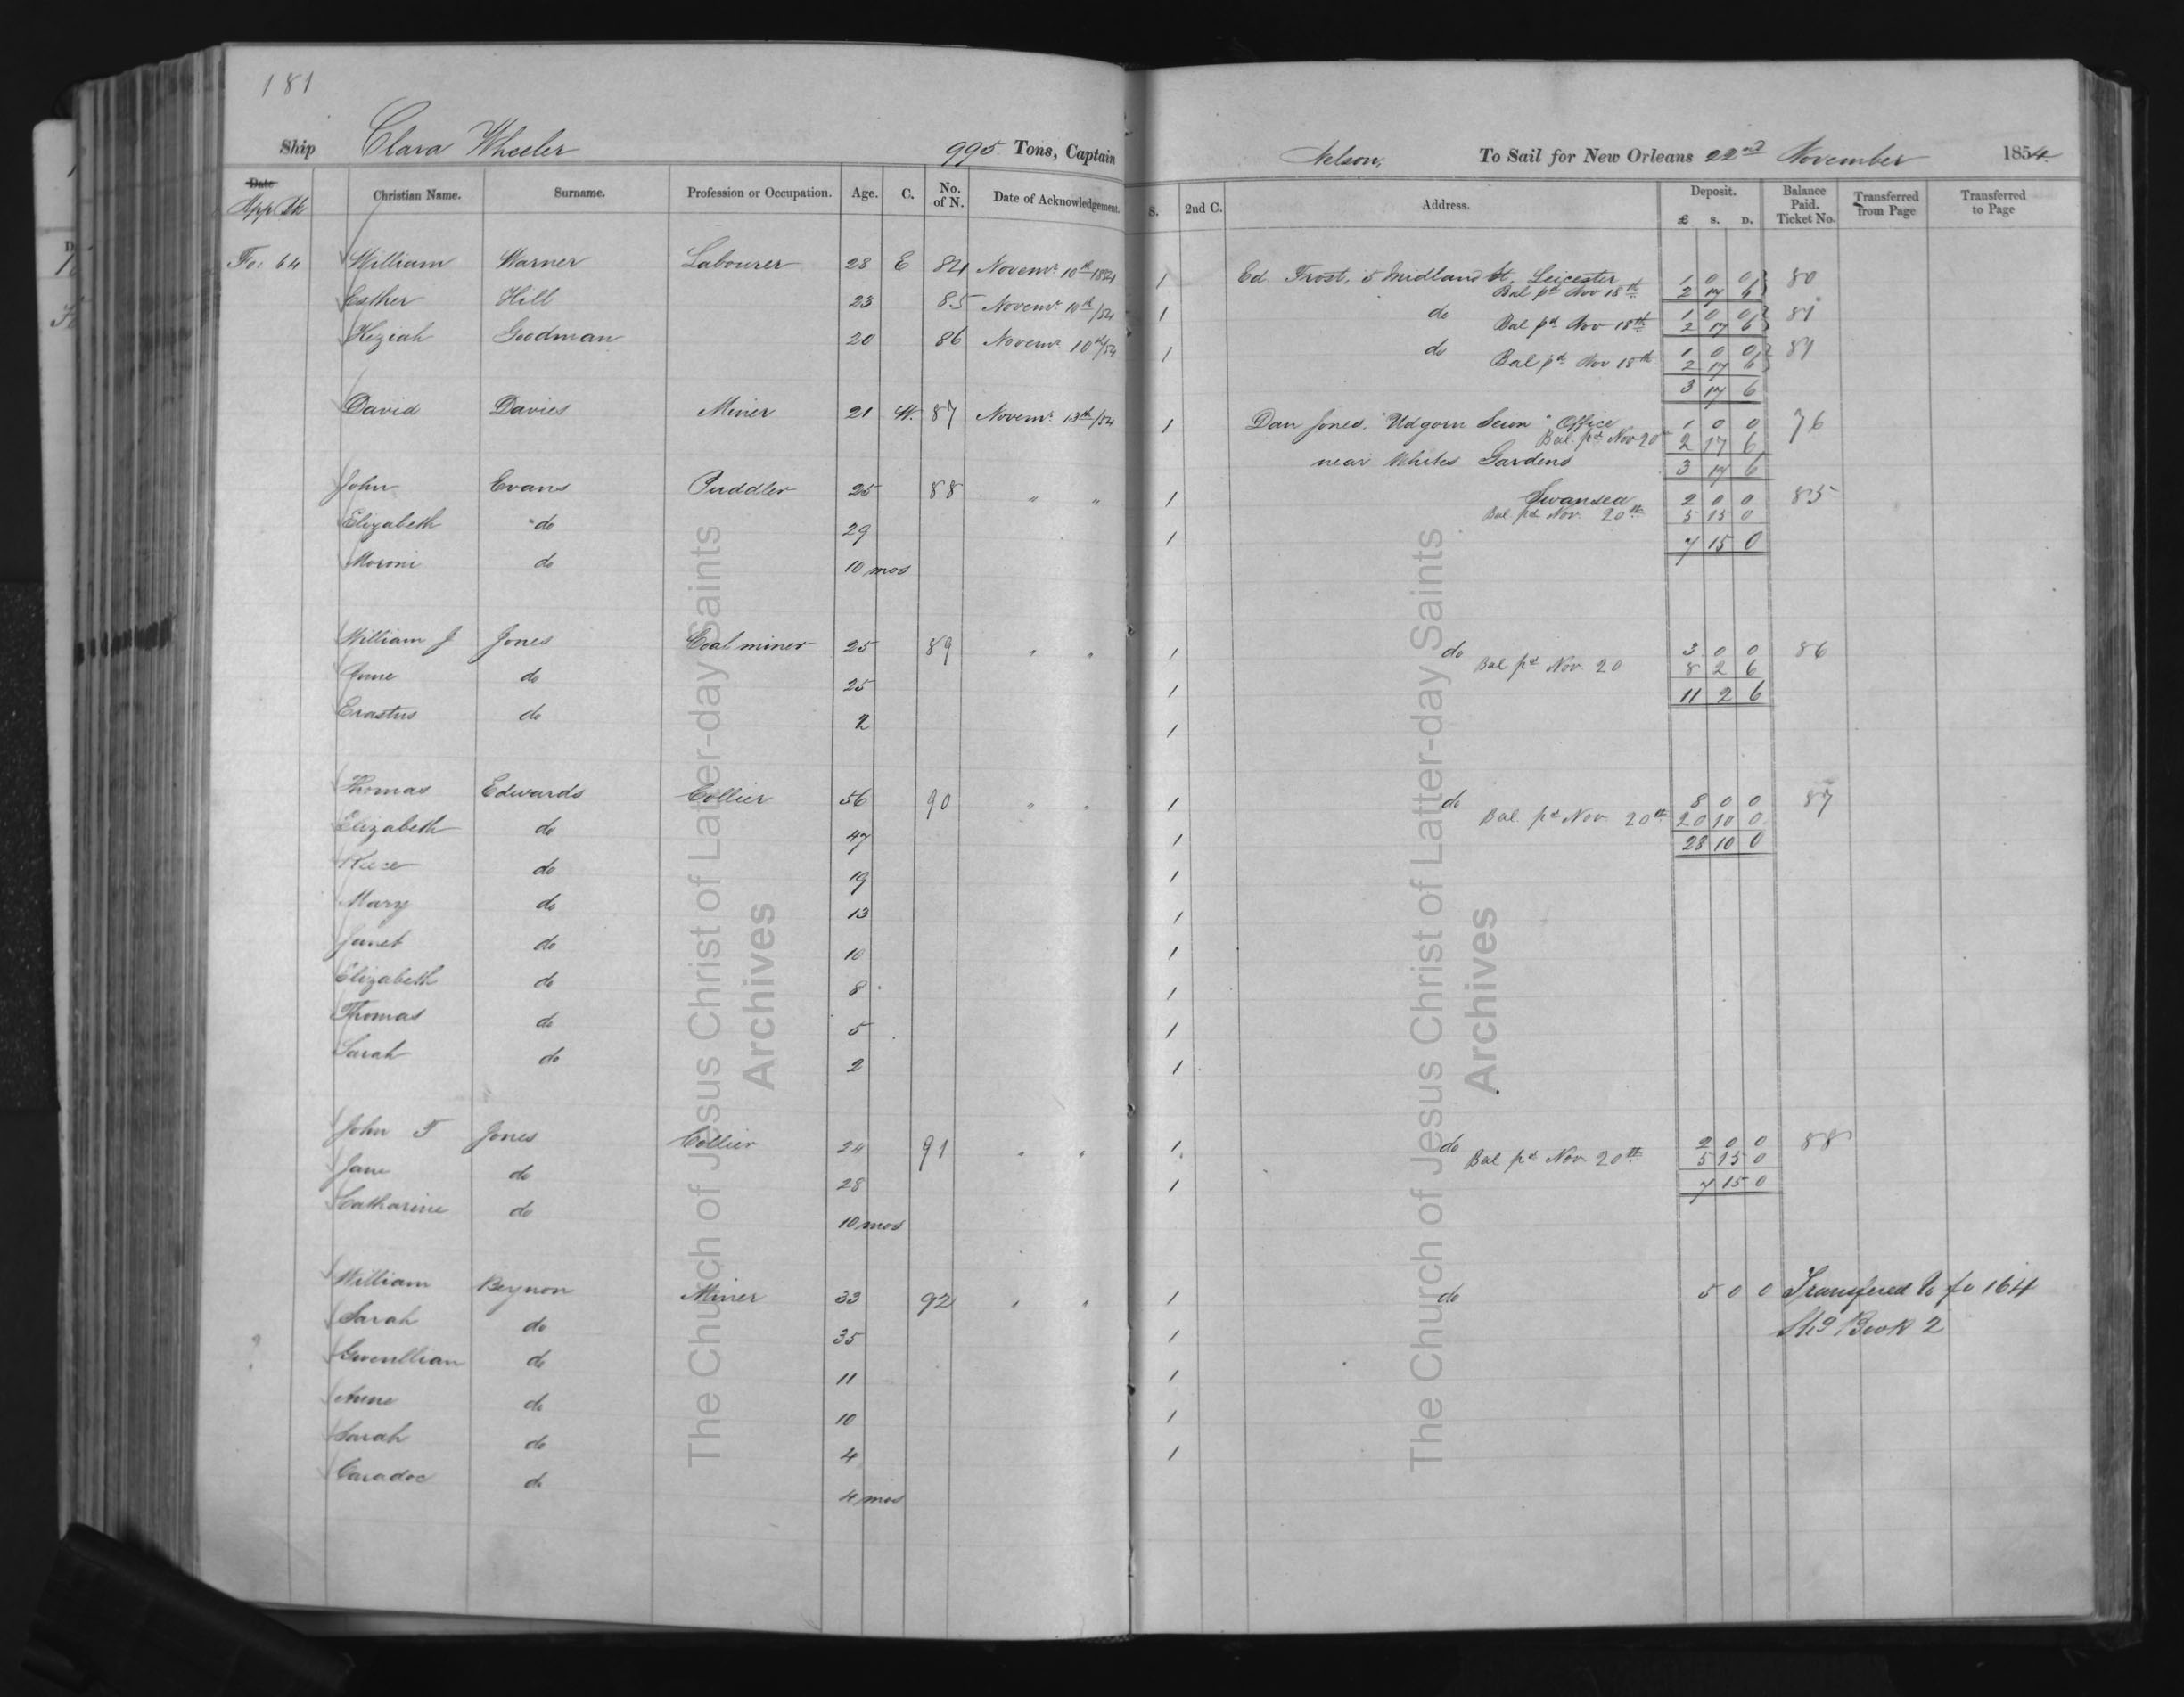 181
Ship Clara Wheeler 995 Tons, Captain Nelson, To Sail for New Orleans 22nd November 1854
Date App Bk Christian Name. Surname. Profession or Occupation. Age. C. No. of N. Date of Acknowledgement. S. 2nd C. Address. Deposit. £ S. D. Balance Paid. Ticket No. Transferred from Page Transferred to Page
Fo: 64 William Warner Labourer 28 E 84 Novemr 10th 1854 1 Ed. Frost, 5 Midland St, Leicester 1 0 0 80
Bal pd Nov 18th 2 17 6
Esther Hill 23 85 Novemr 10th/54 1 do 1 0 0 81
Bal pd Nov 18th 2 17 6
Keziah Goodman 20 86 Novemr 10th/54 1 do 1 0 0 81
Bal pd Nov 18th 2 17 6
3 17 6
David Davies Miner 21 W. 87 Novemr 13th/54 1 Dan Jones, "Udgorn Seion" Office 1 0 0 76
Bal. pd Nov 20 2 17 6
near Whites Gardens 3 17 6
John Evans Puddler 25 88 " " 1 Swansea 2 0 0 85
Bal pd Nov. 20th 5 15 0
Elizabeth do 29 1 7 15 0
Moroni do 10 mos
William J Jones Coal miner 25 89 " " 1 do 3 0 0 86
Bal pd Nov. 20 8 2 6
Anne do 25 1 11 2 6
Erastus do 2 1
Thomas Edwards Collier 56 90 " " 1 do 8 0 0 87
Bal. pd Nov. 20th 20 10 0
Elizabeth do 47 1 28 10 0
Reese do 19 1
Mary do 13 1
Janet do 10 1
Elizabeth do 8 1
Thomas do 5 1
Sarah do 2 1
John T Jones Collier 24 91 " " 1 do 2 0 0 88
Bal pd Nov. 20th 5 15 0
Jane do 28 1 7 15 0
Catharine do 10 mos
William Beynon Miner 33 92 " " 1 do 5 0 0 Transfered to fo 164
Sarah do 35 1 Book 2
Gwenllian do 11 1
Anne do 10 1
Sarah do 4 1
Caradoc do 4 mos
The Church of Jesus Christ of Latter-day Saints
Archives
The Church of Jesus Christ of Latter-day Saints
Archives